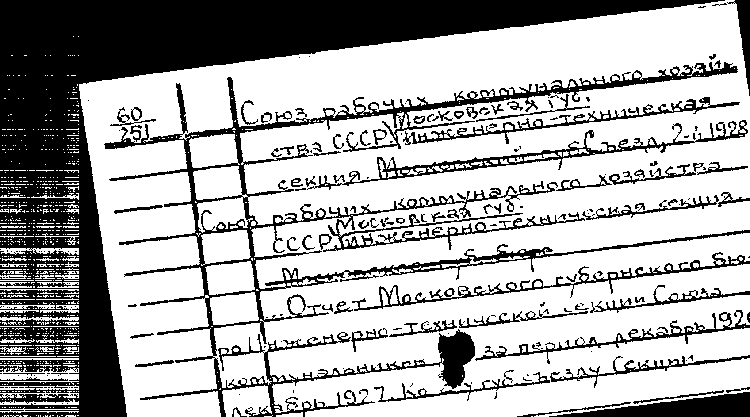 60
251
Союз рабочих коммунального хозяй-
Московская губ.
ства СССР. Инженерно-техническая
секция. Московский губ. Съезд, 2-й 1928
Союз рабочих коммунального хозяйства
Московская губ.
СССР. Инженерно-техническая секция.
Московское губ. бюро
...Отчет Московского губернского Бю-
ро Инженерно-технической секции Союза
коммунальников за период декабрь 1926
декабрь 1927. Ко губ. съезду Секции